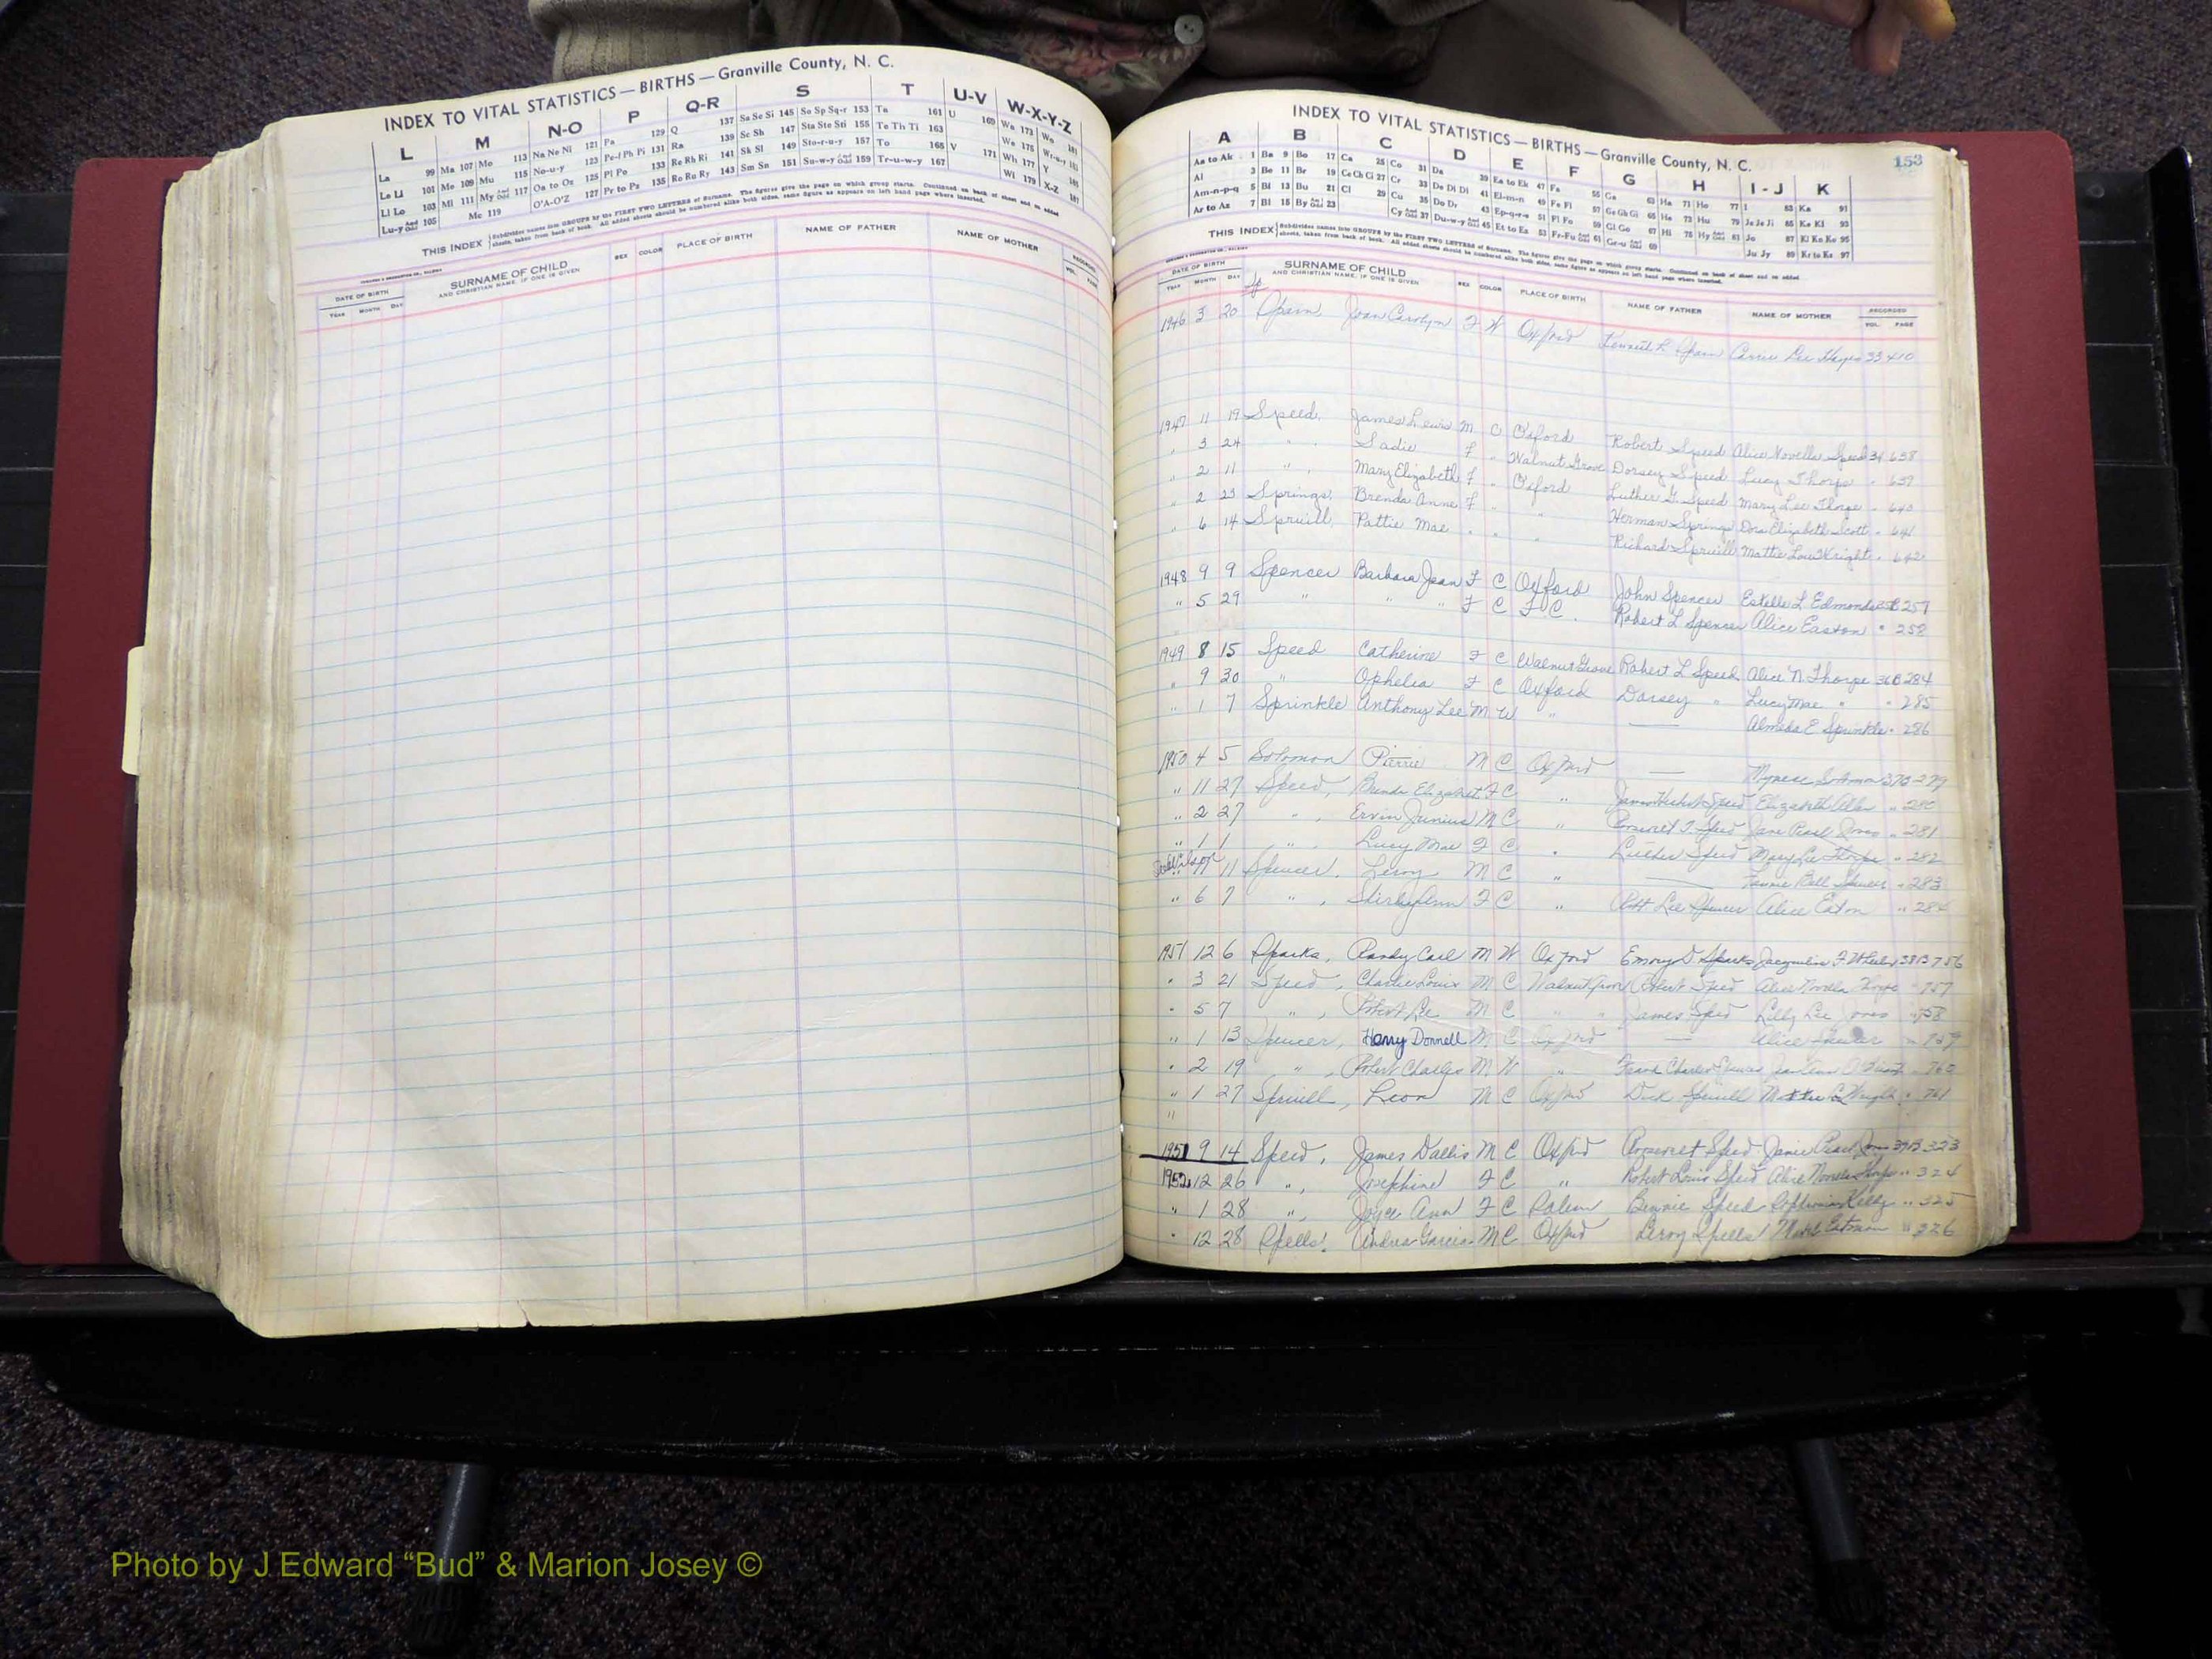 INDEX TO VITAL STATISTICS — BIRTHS — Granville County, N. C.
L M N-O P Q-R S T U-V W-X-Y-Z
La 99 Ma 107 Mo 113 Na Ne Ni 121 Pa 129 Q 137 Sa Se Si 145 So Sp Sq-r 153 Ta 161 U 169 Wa 173 Wo 181
Le Li 101 Me 109 Mu 115 No-u-y 123 Pe-f Ph Pi 131 Ra 139 Sc Sh 147 Sta Ste Sti 155 Te Th Ti 163 V 171 We 175 Wr-u-y
Ll Lo 103 Mi 111 My And Odd 117 Oa to Oz 125 Pl Po 133 Re Rh Ri 141 Sk Sl 149 Sto-r-u-y 157 To 165 Wh 177 Y
Lu-y And Odd 105 Mc 119 O'A-O'Z 127 Pr to Pz 135 Ro Ru Ry 143 Sm Sn 151 Su-w-y And Odd 159 Tr-u-w-y 167 Wi 179 X-Z
THIS INDEX Subdivides names into GROUPS by the FIRST TWO LETTERS of Surname. The figures give the page on which group starts. Continued on back of sheet and on added
sheets, taken from back of book. All added sheets should be numbered alike both sides, same figure as appears on left hand page where inserted.
DATE OF BIRTH SURNAME OF CHILD SEX COLOR PLACE OF BIRTH NAME OF FATHER NAME OF MOTHER RECORDED
YEAR MONTH DAY AND CHRISTIAN NAME, IF ONE IS GIVEN VOL. PAGE
INDEX TO VITAL STATISTICS — BIRTHS — Granville County, N. C.
153
A B C D E F G H I-J K
Aa to Ak 1 Ba 9 Bo 17 Ca 25 Co 31 Da 39 Ea to Ek 47 Fa 55 Ga 63 Ha 71 Ho 77 I 83 Ka 91
Al 3 Be 11 Br 19 Ce Ch Ci 27 Cr 33 De Di Dl 41 El-m-n 49 Fe Fi 57 Ge Gh Gi 65 He 73 Hu 79 Ja Je Ji 85 Ke Ki 93
Am-n-p-q 5 Bi 13 Bu 21 Cl 29 Cu 35 Do Dr 43 Ep-q-r-s 51 Fl Fo 59 Gl Go 67 Hi 75 Hy And Odd 81 Jo 87 Kl Kn Ko 95
Ar to Az 7 Bl 15 By And Odd 23 Cy And Odd 37 Du-w-y And Odd 45 Et to Ez 53 Fr-Fu And Odd 61 Gr-u And Odd 69 Ju Jy 89 Kr to Kz 97
THIS INDEX Subdivides names into GROUPS by the FIRST TWO LETTERS of Surname. The figures give the page on which group starts. Continued on back of sheet and on added
sheets, taken from back of book. All added sheets should be numbered alike both sides, same figure as appears on left hand page where inserted.
DATE OF BIRTH SURNAME OF CHILD SEX COLOR PLACE OF BIRTH NAME OF FATHER NAME OF MOTHER RECORDED
YEAR MONTH DAY AND CHRISTIAN NAME, IF ONE IS GIVEN VOL. PAGE
Sp
1946 3 20 Spain Joan Carolyn F W Oxford Kenneth L Spain Carrie Lee Hayes 33 410
1947 11 19 Speed, James Lewis M C Oxford Robert Speed Alice Novella Speed 34 638
" 3 24 " , Sadie F " Walnut Grove Dorsey Speed Lucy Thorpe " 639
" 2 11 " , Mary Elizabeth F " Oxford Luther G. Speed Mary Lee Thorpe " 640
" 2 23 Springs, Brenda Anne F " " Herman Springs Dora Elizabeth Scott " 641
" 6 14 Spruill, Pattie Mae " " " Richard Spruill Mattie Lou Wright " 642
1948 9 9 Spencer Barbara Jean F C Oxford John Spencer Estelle L Edmonds 35B 257
" 5 29 " " " F C F.C. Robert L Spencer Alice Easton " 258
1949 8 15 Speed Catherine F C Walnut Grove Robert L Speed Alice N. Thorpe 36B 284
" 9 30 " Ophelia F C Oxford Dorsey " Lucy Mae " " 285
" 1 7 Sprinkle Anthony Lee M W " — Almeda E Sprinkle " 286
1950 4 5 Solomon Pierrie M C Oxford — Solomon 37B 279
" 11 27 Speed, Brenda Elizabeth F C " James Speed Elizabeth Allen " 280
" 2 27 " , Ervin Junius M C " Roosevelt T. Speed Jane Pearl Jones " 281
" 1 1 " , Lucy Mae F C " Luther Speed Mary Lee Thorpe " 282
11 Spencer, Leroy M C " — Fannie Bell Spencer " 283
" 6 7 " , Shirley Ann F C " Robt Lee Spencer Alice Eaton " 284
1951 12 6 Sparks, Randy Carl M W Oxford Emory D Sparks Jacqueline F. Wheeler 38B 756
" 3 21 Speed, Charlie Louis M C Walnut Grove Robert Speed Alice Novella Thorpe " 757
" 5 7 " , Robert Lee M C " " James Speed Lilly Lee Jones " 758
" 1 13 Spencer, Harry Donnell M C Oxford — Alice Spencer " 759
" 2 19 " , Robert Charles M W " Frank Charles Spencer Jean Ann " 760
" 1 27 Spruill, Leon M C Oxford Dock Spruill Mattie L Wright " 761
"
1951 9 14 Speed, James Dallis M C Oxford Roosevelt Speed Janie Pearl Jones 39B 323
1952 12 26 " , Josephine F C " Robert Louis Speed Alice Novella Thorpe " 324
" 1 28 " , Joyce Ann F C Salem Bennie Speed Kelly " 325
" 12 28 Spells, Andrea Garcia M C Oxford Leroy Spells Mable Eatman " 326
Photo by J Edward “Bud” & Marion Josey ©